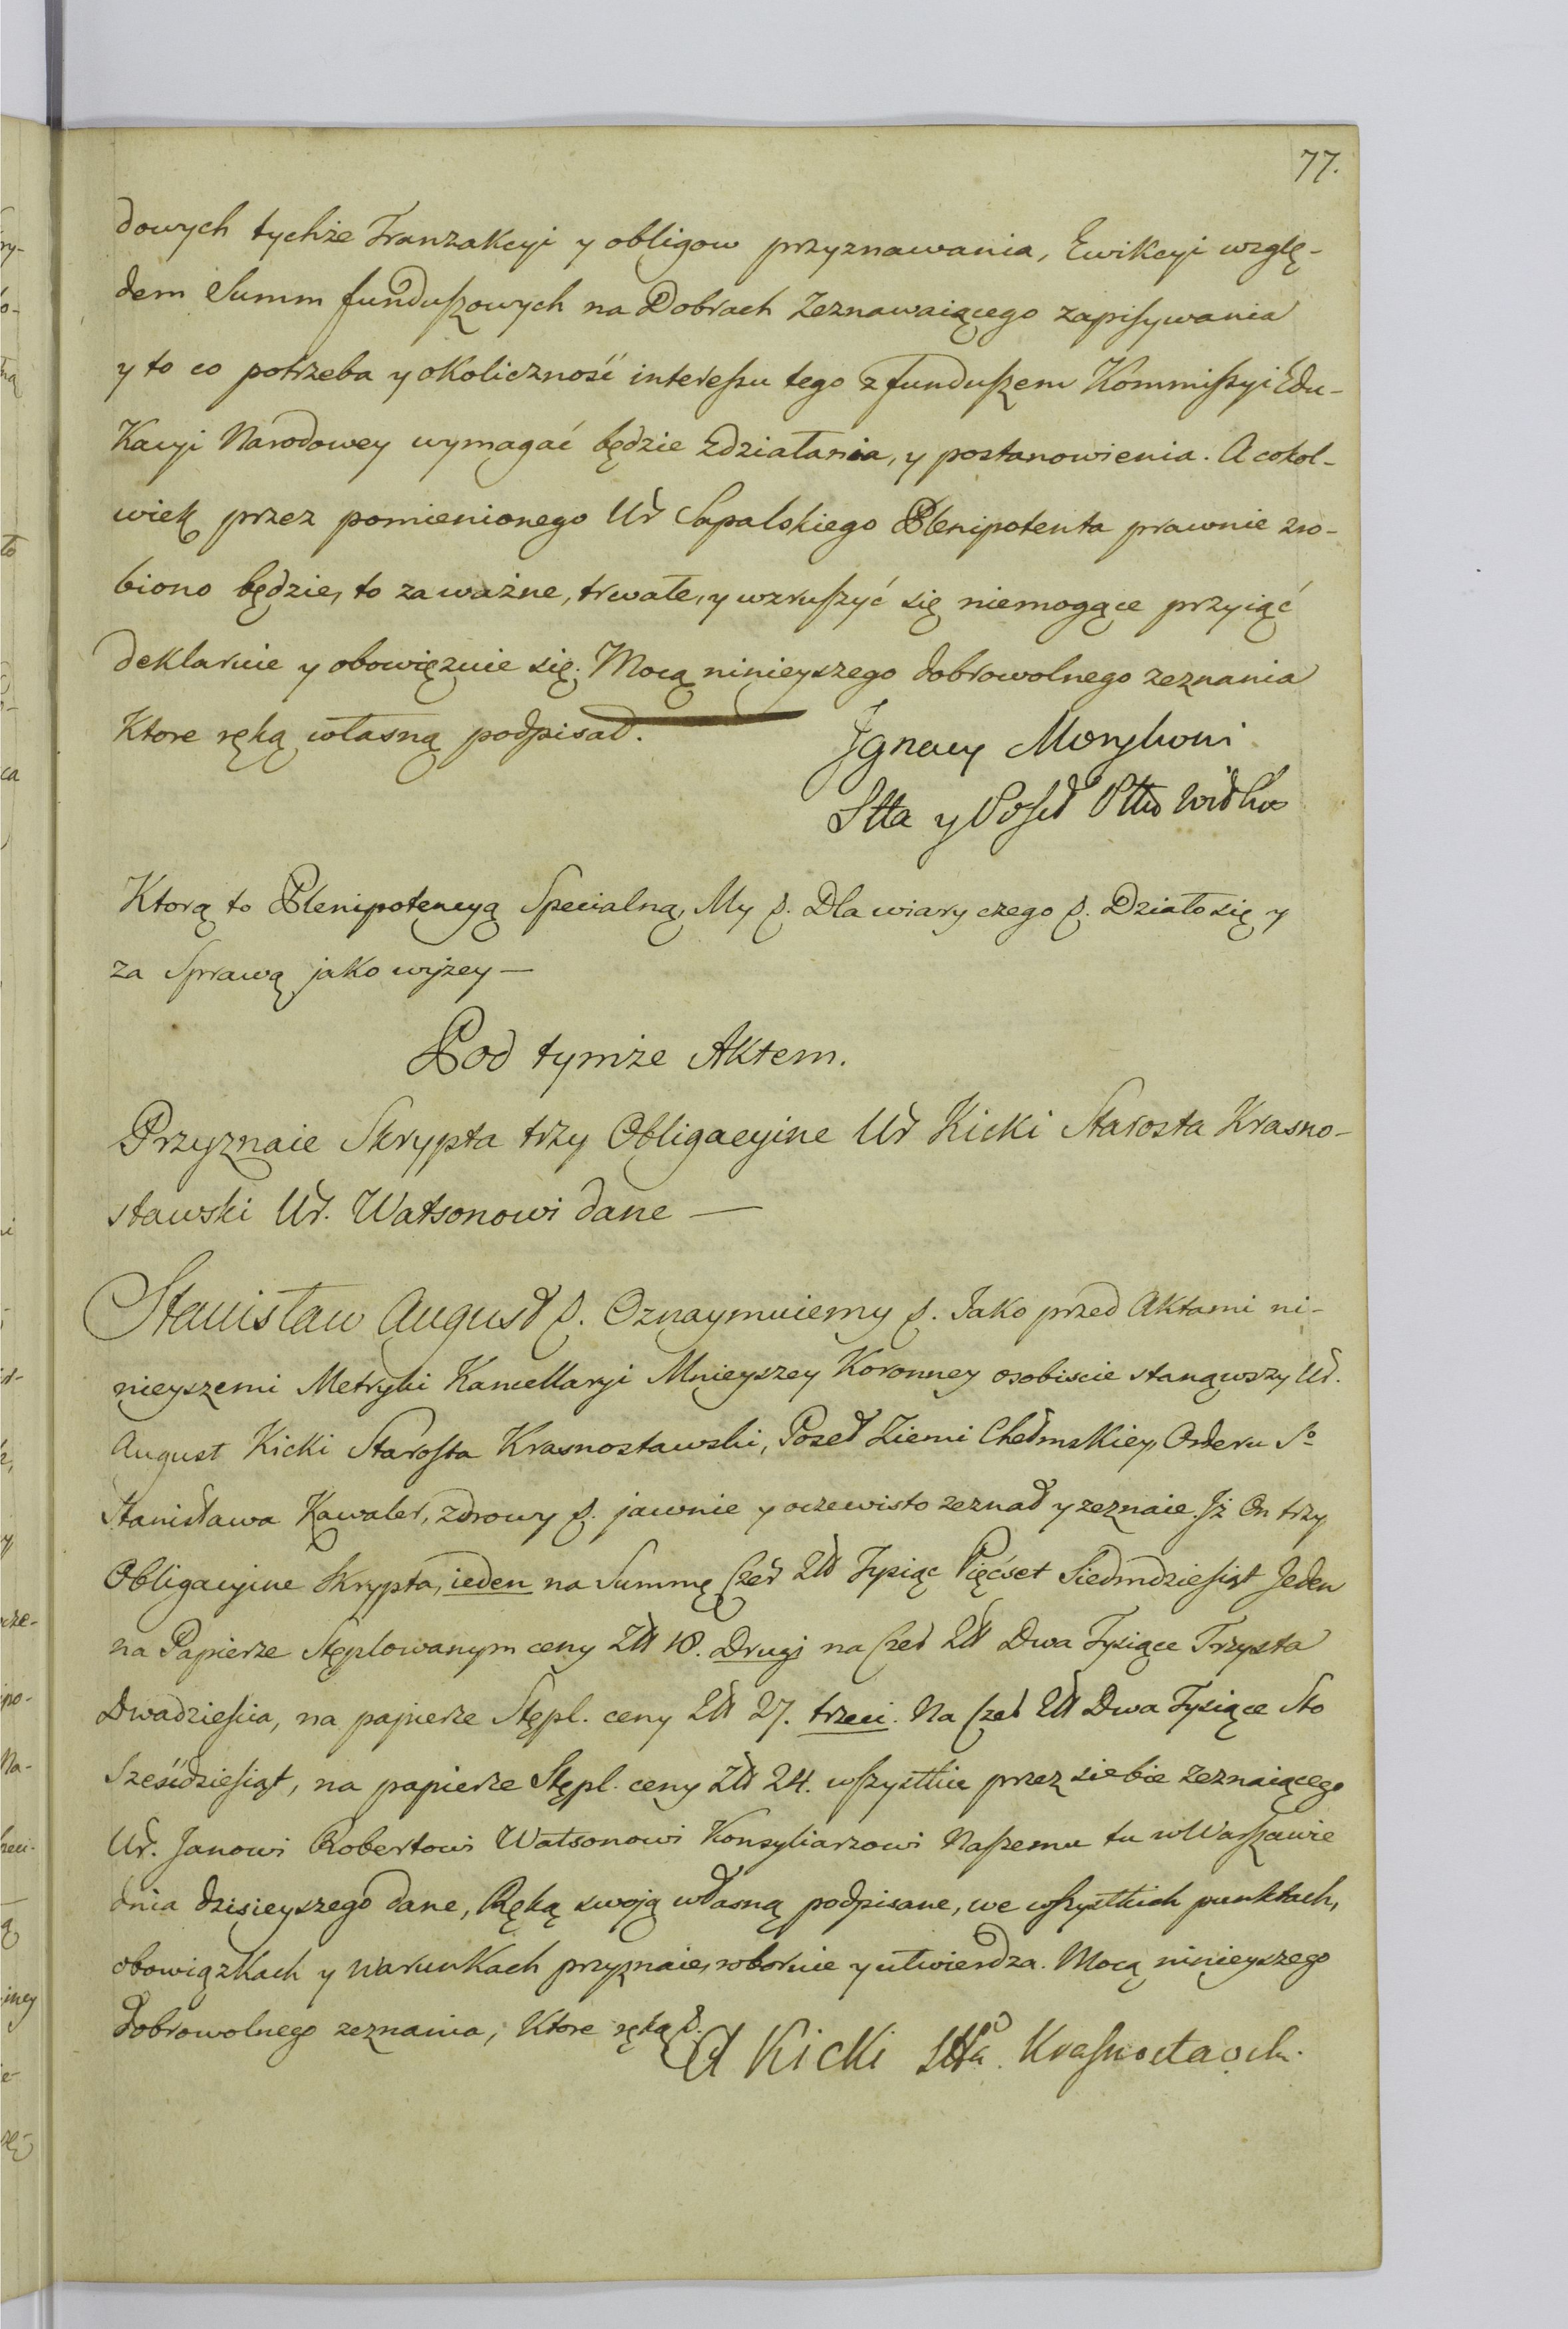 77.
dowych tychże Tranzakcyi y obligow przyznawania, Ewikcyi wzglę-
dem Summ funduszowych na Dobrach Zeznawaiącego zapisywania
y to co potrzeba y okoliczność interessu tego z funduszem Kommissyi Edu-
kacyi Narodowey wymagać będzie zdziałania, y postanowienia. A cokol-
wiek przez pomienionego Ur Sapalskiego Plenipotenta prawnie zro-
biono będzie, to za ważne, trwałe, y wzruszyć się niemogące przyiąć
deklaruie y obowięzuie się. Mocą ninieyszego dobrowolnego zeznania
Ktore ręką własną podpisał.
Ignacy Morykoni
Stta y Poseł Pttu Wiłko
Ktorą to Plenipotencyą Specialną, My p. Dla wiary czego p. Działo się y
za Sprawą jako wyżey —
Pod tymże Aktem.
Przyznaie Skrypta trzy Obligacyine Ur Kicki Starosta Krasno-
stawski Ur. Watsonowi dane —
Stanisław August p. Oznaymuiemy p. Jako przed Aktami ni-
nieyszemi Metryki Kancellaryi Mnieyszey Koronney osobiscie stanąwszy Ur.
August Kicki Starosta Krasnostawski, Poseł Ziemi Chełmskiey, Orderu So
Stanisława Kawaler, zdrowy p. jawnie y oczewisto zeznał y zeznaie. Iż On trzy
Obligacyine Skrypta, ieden na Summę Czer Złł Tysiąc Pięćset Siedmdziesiąt Jeden
na Papierze Stęplowanym ceny Złł 18. Drugi na Czer Złł Dwa Tysiące Trzysta
Dwadziescia, na papierze Stępl. ceny Złł 27. trzeci. Na Czer Złł Dwa Tysiące Sto
Sześćdziesiąt, na papierze Stępl. ceny Złł 24. wszystkie przez siebie zeznaiącego
Ur. Janowi Robertowi Watsonowi Konsyliarzowi Naszemu tu w Warszawie
dnia dzisieyszego dane, Ręką swoją własną podpisane, we wszystkich punktach,
obowiązkach y warunkach przyznaie, roboruie y utwierdza. Mocą ninieyszego
dobrowolnego zeznania, Ktore ręką p.
A Kicki Stta. Krasnostawsk.